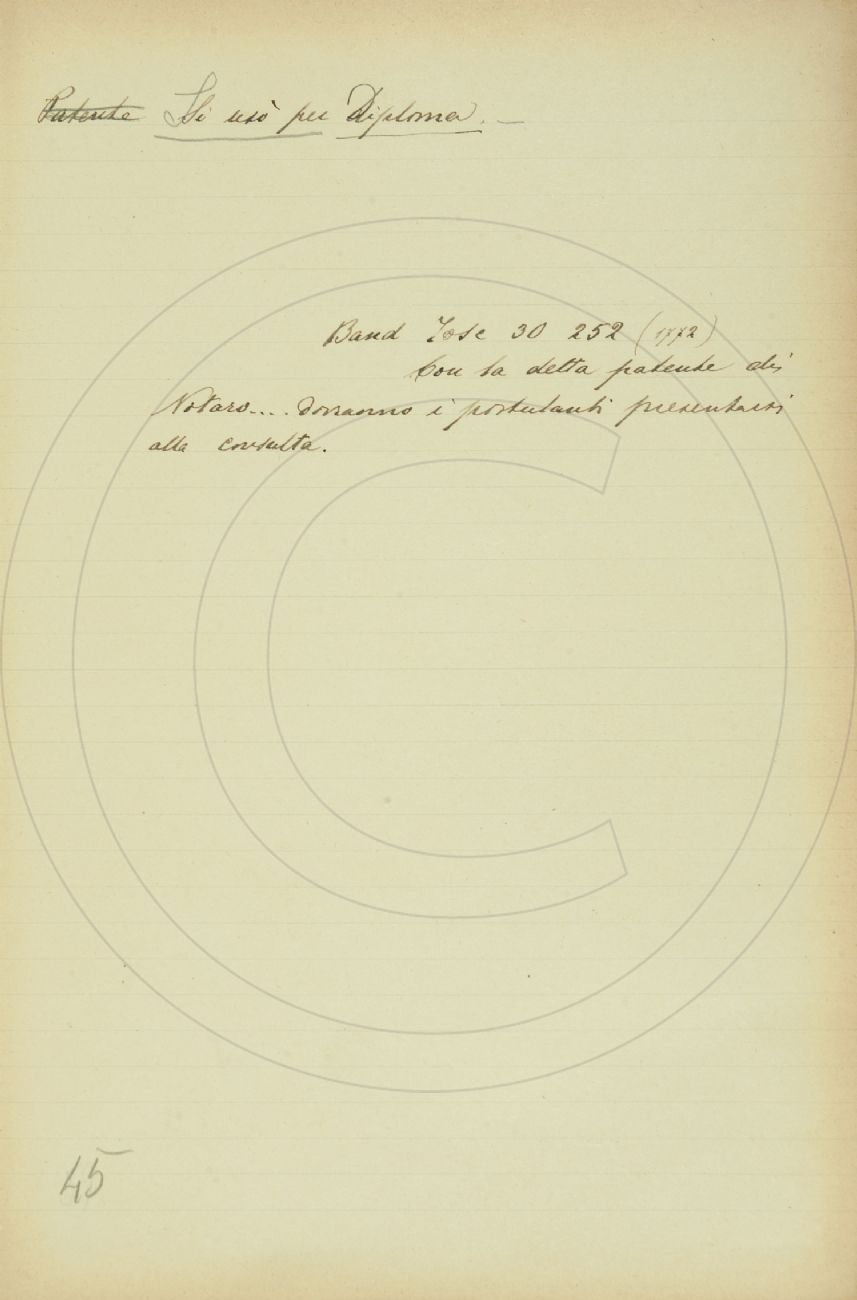 Patente Si usò per Diploma. —
Band Tosc 30 252 (1772)
Con la detta patente di
Notaro.... dovranno i postulanti presentarsi
alla consulta.
45